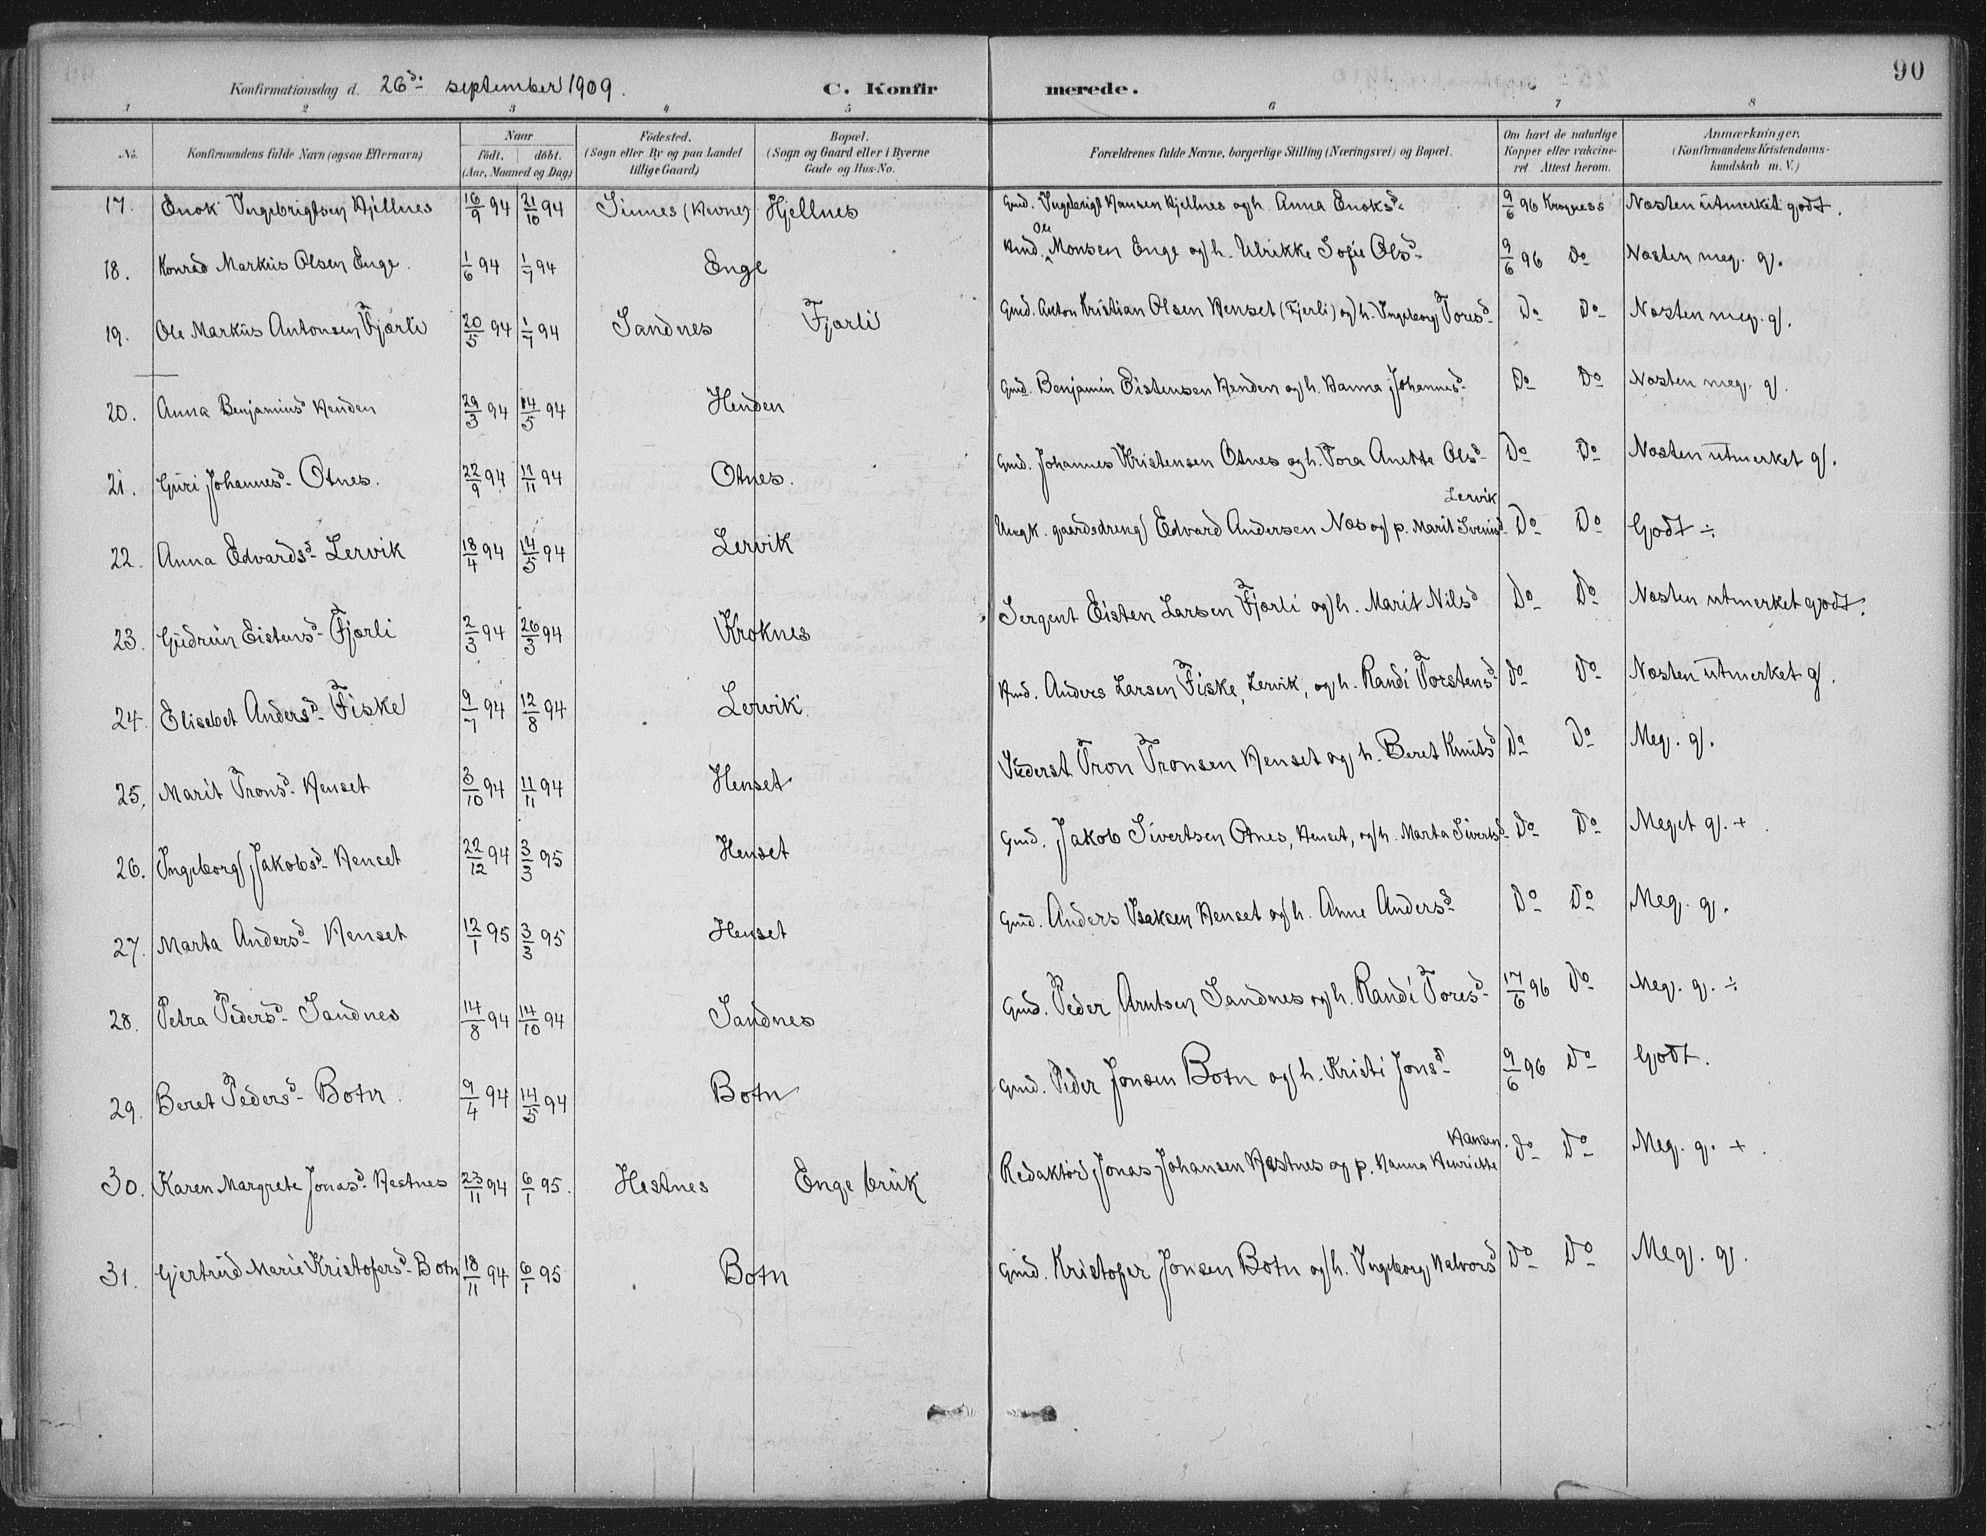 90
Konfirmationsdag d. 26d: september 1909. C. Konfirmerede.
1 2 3 4 5 6 7 8
No. Konfirmandens fulde Navn (ogsaa Efternavn) Naar født. døbt. (Aar, Maaned og Dag) Fødested. (Sogn eller By og paa Landet tillige Gaard) Bopæl. (Sogn og Gaard eller i Byerne Gade og Hus-No. Forældrenes fulde Navne, borgerlige Stilling (Næringsvei) og Bopæl. Om havt de naturlige Kopper eller vakcineret Attest herom. Anmærkninger. (Konfirmandens Kristendomskundskab m. V.)
17. Enok Ingebrigtsen Hjellnes 16/9 94 21/10 94 Sinnes (Hevne) Hjellnes Gmd. Ingebrigt Hansen Hjellnes og h. Anna Enoksd. 9/6 96 Krogness Næsten utmerket godt.
18. Konrad Markus Olsen Enge. 1/6 94 1/7 94 Enge Hmd. Ole Monsen Enge og h. Ulrikke Sofie Olsd. 9/6 96 Do Næsten meg. g.
19. Ole Markus Antonsen Fjærli 20/5 94 1/7 94 Sandnes Fjærli Gmd. Anton Kristian Olsen Henset (Fjerli) og h. Ingeborg Toresd. Do Do Næsten meg. g.
20. Anna Benjaminsd. Henden 29/3 94 14/5 94 Henden Gmd. Benjamin Eistensen Henden og h. Hanna Johannesd. Do Do Næsten meg. g.
21. Guri Johannesd. Otnes. 22/9 94 11/11 94 Otnes. Gmd. Johannes Kristensen Otnes og h. Tora Anetta Olsd. Do Do Næsten utmerket g.
22. Anna Edvardsd. Lervik 18/4 94 14/5 94 Lervik Ungk. gaardsdreng Edvard Andersen Næs og p. Marit Svensd. Lervik Do Do Godt ÷
23. Gudrun Eistensd. Fjærli 2/3 94 26/3 94 Kroknes Sergent Eisten Larsen Fjærli og h. Marit Nilsd Do Do Næsten utmerket godt.
24. Elisebet Andersd. Fiske 9/7 94 12/8 94 Lervik Hmd. Anders Larsen Fiske, Lervik, og h. Randi Torstensd. Do Do Næsten utmerket g.
25. Marit Tronsd. Henset 3/10 94 11/11 94 Henset Inderst Tron Tronsen Henset og h. Beret Knutsd Do Do Meg. g.
26. Ingeborg Jakobsd. Henset 22/12 94 3/3 95 Henset Gmd. Jakob Sivertsen Otnes, Henset, og h. Marta Sivertsd. Do Do Meget g. +
27. Marta Andersd. Henset 12/1 95 3/3 95 Henset Gmd. Anders Isaksen Henset og h. Anne Andersd. Do Do Meg. g.
28. Petra Pedersd. Sandnes 14/8 94 14/10 94 Sandnes Gmd. Peder Arntsen Sandnes og h. Randi Toresd. 17/6 96 Do Meg. g. ÷
29. Beret Pedersd. Botn. 9/4 94 14/5 94 Botn Gmd. Peder Jonsen Botn og h. Kristi Jonsd. 9/6 96 Do Godt.
30. Karen Margrete Jonasd. Hestnes 23/11 94 6/1 95. Hestnes Enge bruk Redaktør Jonas Johansen Hestnes og p. Hanna Henriette Hansen. Do Do Meg. g. +
31. Gjertrud Merie Kristofersd. Botn 18/11 94 6/1 95 Botn Gmd. Kristofer Jonsen Botn og h. Ingeborg Halvorsd Do Do Meg. g.